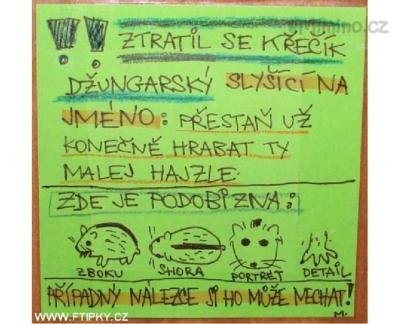 emimino.cz
!! ZTRATIL SE KŘEČIK
DŽUNGARSKÝ SLYŠÍCÍ NA
JMÉNO: PŘESTAŇ UŽ
KONEČNĚ HRABAT TY
MALEJ HAJZLE.
ZDE JE PODOBIZNA:
ZBOKU SHORA PORTRÉT DETAIL
PŘÍPADNÝ NÁLEZCE SI HO MŮŽE NECHAT!
M.
WWW.FTIPKY.CZ